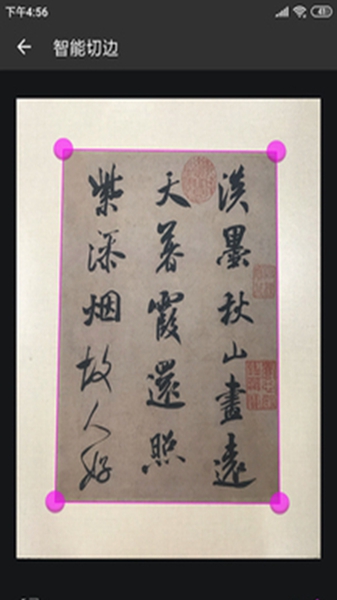 下午4:56
41
智能切边
淡墨秋山画遠
天暮霞還照
紫添烟故人好